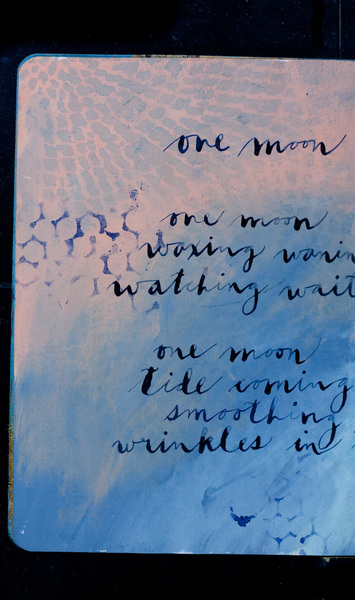 one moon
one moon
waxing wanin
watching wait
one moon
tide coming
smoothing
wrinkles in